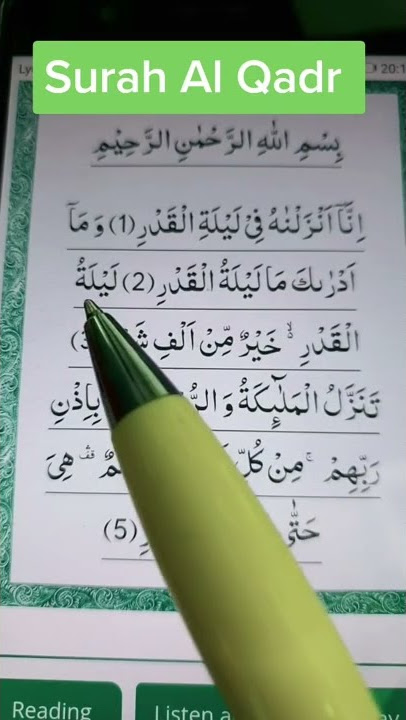 Surah Al Qadr
بِسْمِ اللهِ الرَّحْمٰنِ الرَّحِيْمِ
اِنَّآ اَنْزَلْنٰهُ فِيْ لَيْلَةِ الْقَدْرِ (1) وَ مَآ
اَدْرٰىكَ مَا لَيْلَةُ الْقَدْرِ (2) لَيْلَةُ
الْقَدْرِ ۙ خَيْرٌ مِّنْ اَلْفِ
تَنَزَّلُ الْمَلٰٓىِٕكَةُ وَ بِاِذْنِ
رَبِّهِمْ ۚ مِنْ كُلِّ هِيَ
حَتّٰى (5)
Reading
Listen